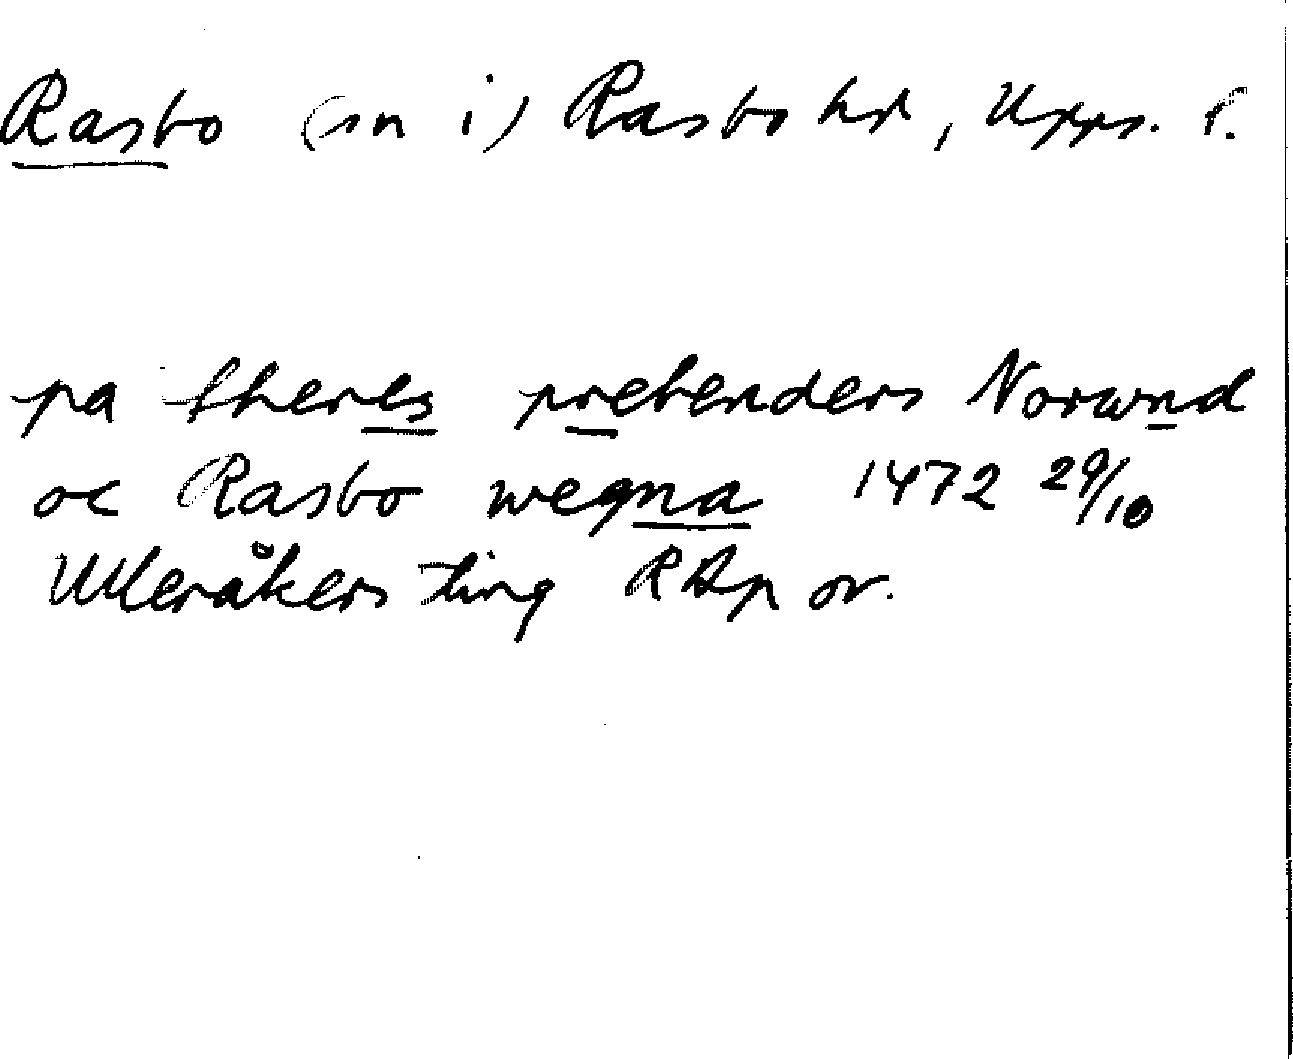 Rasbo (sn i) Rasbo hd, Upps. l.
pa theres prebenders Norwnd
oc Rasbo wegna 1472 29/10
Ulleråkers ting RAp or.